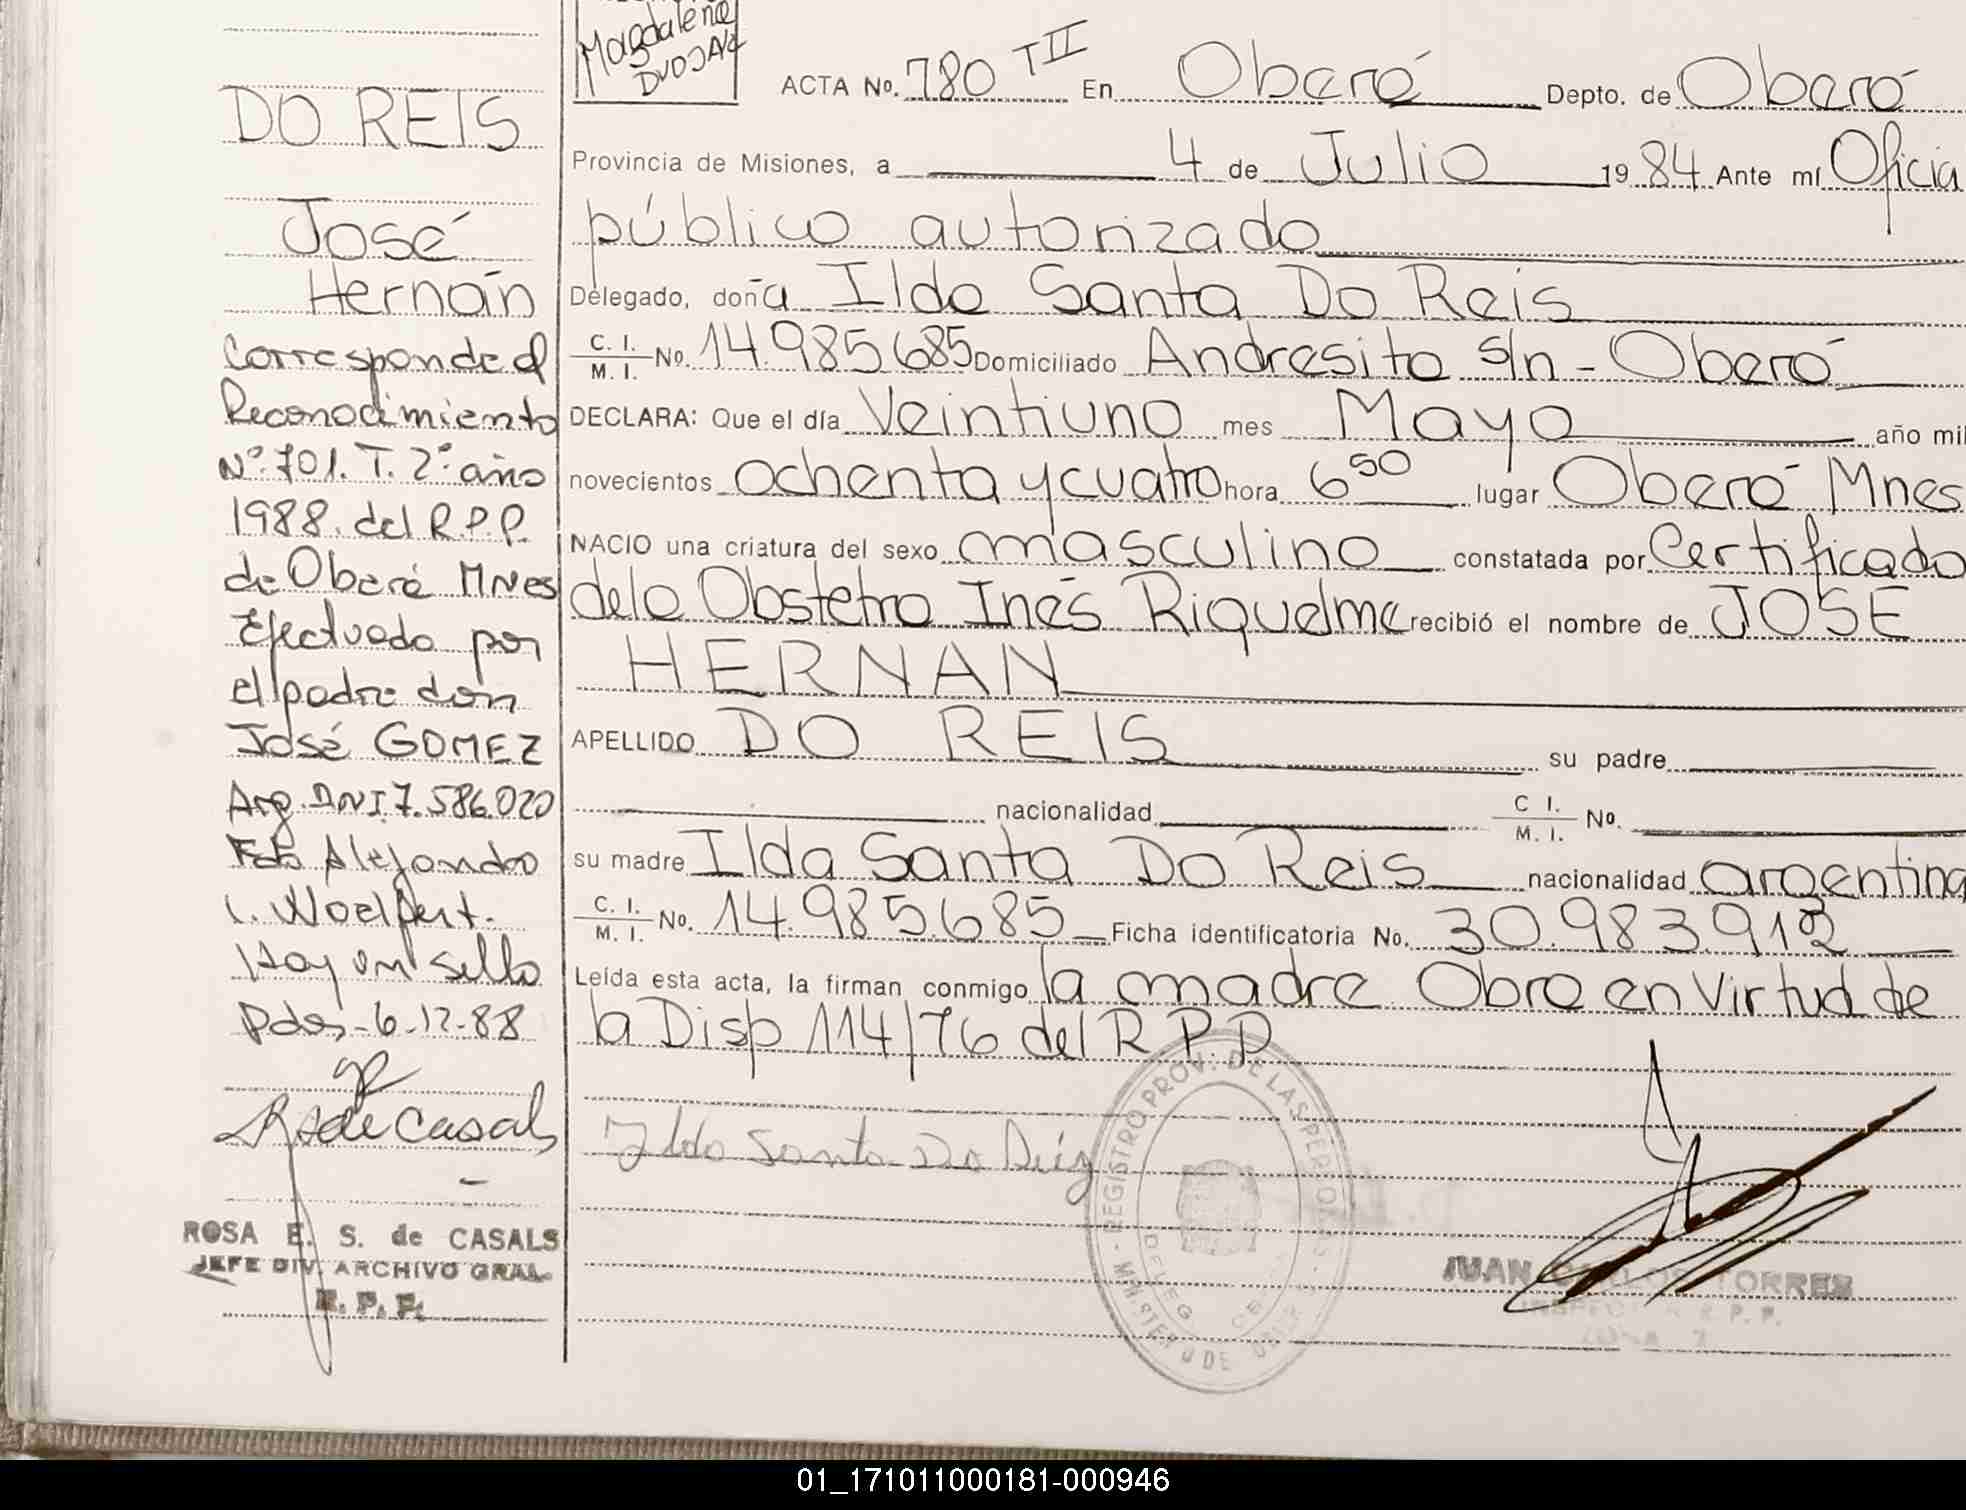 Magdalena
DO REIS
José
Hernán
Corresponde al
Reconocimiento
Nº.701. T. 2º año
1988. del R.P.P.
de Oberá MNes
Efectuado por
el padre don
José GOMEZ
Arg. DNI 7.586.020
Fdo Alejandro
Hay un sello
Pdas,-6-12-88
R S de Casals
ROSA E. S. de CASALS
JEFE DIV. ARCHIVO GRAL.
R. P. P.
ACTA Nº. 780 T II En Oberá Depto. de Oberá
Provincia de Misiones, a 4 de Julio 1984 Ante mí Oficia
público autorizado
Delegado, doña Ilda Santa Do Reis
C. I. / M. I. Nº. 14.985685 Domiciliado Andresito s/n - Oberá
DECLARA: Que el día Veintiuno mes Mayo año mil
novecientos ochenta y cuatro hora 6 50 lugar Oberá Mnes
NACIO una criatura del sexo masculino constatada por Certificado
de la Obstetra Inés Riquelme recibió el nombre de JOSE
HERNAN
APELLIDO DO REIS su padre
nacionalidad C I. / M. I. Nº.
su madre Ilda Santa Do Reis nacionalidad argentina
C. I. / M. I. Nº. 14.985.685 Ficha identificatoria No. 30.983.912
Leída esta acta, la firman conmigo la madre Obro en Virtud de
la Disp 114/76 del R.P.P
Ilda Santa Do Reis
REGISTRO PROV. DE LAS PERSONAS
JUAN CARLOS TORRES
INSPECTOR R. P. P.
01_171011000181-000946